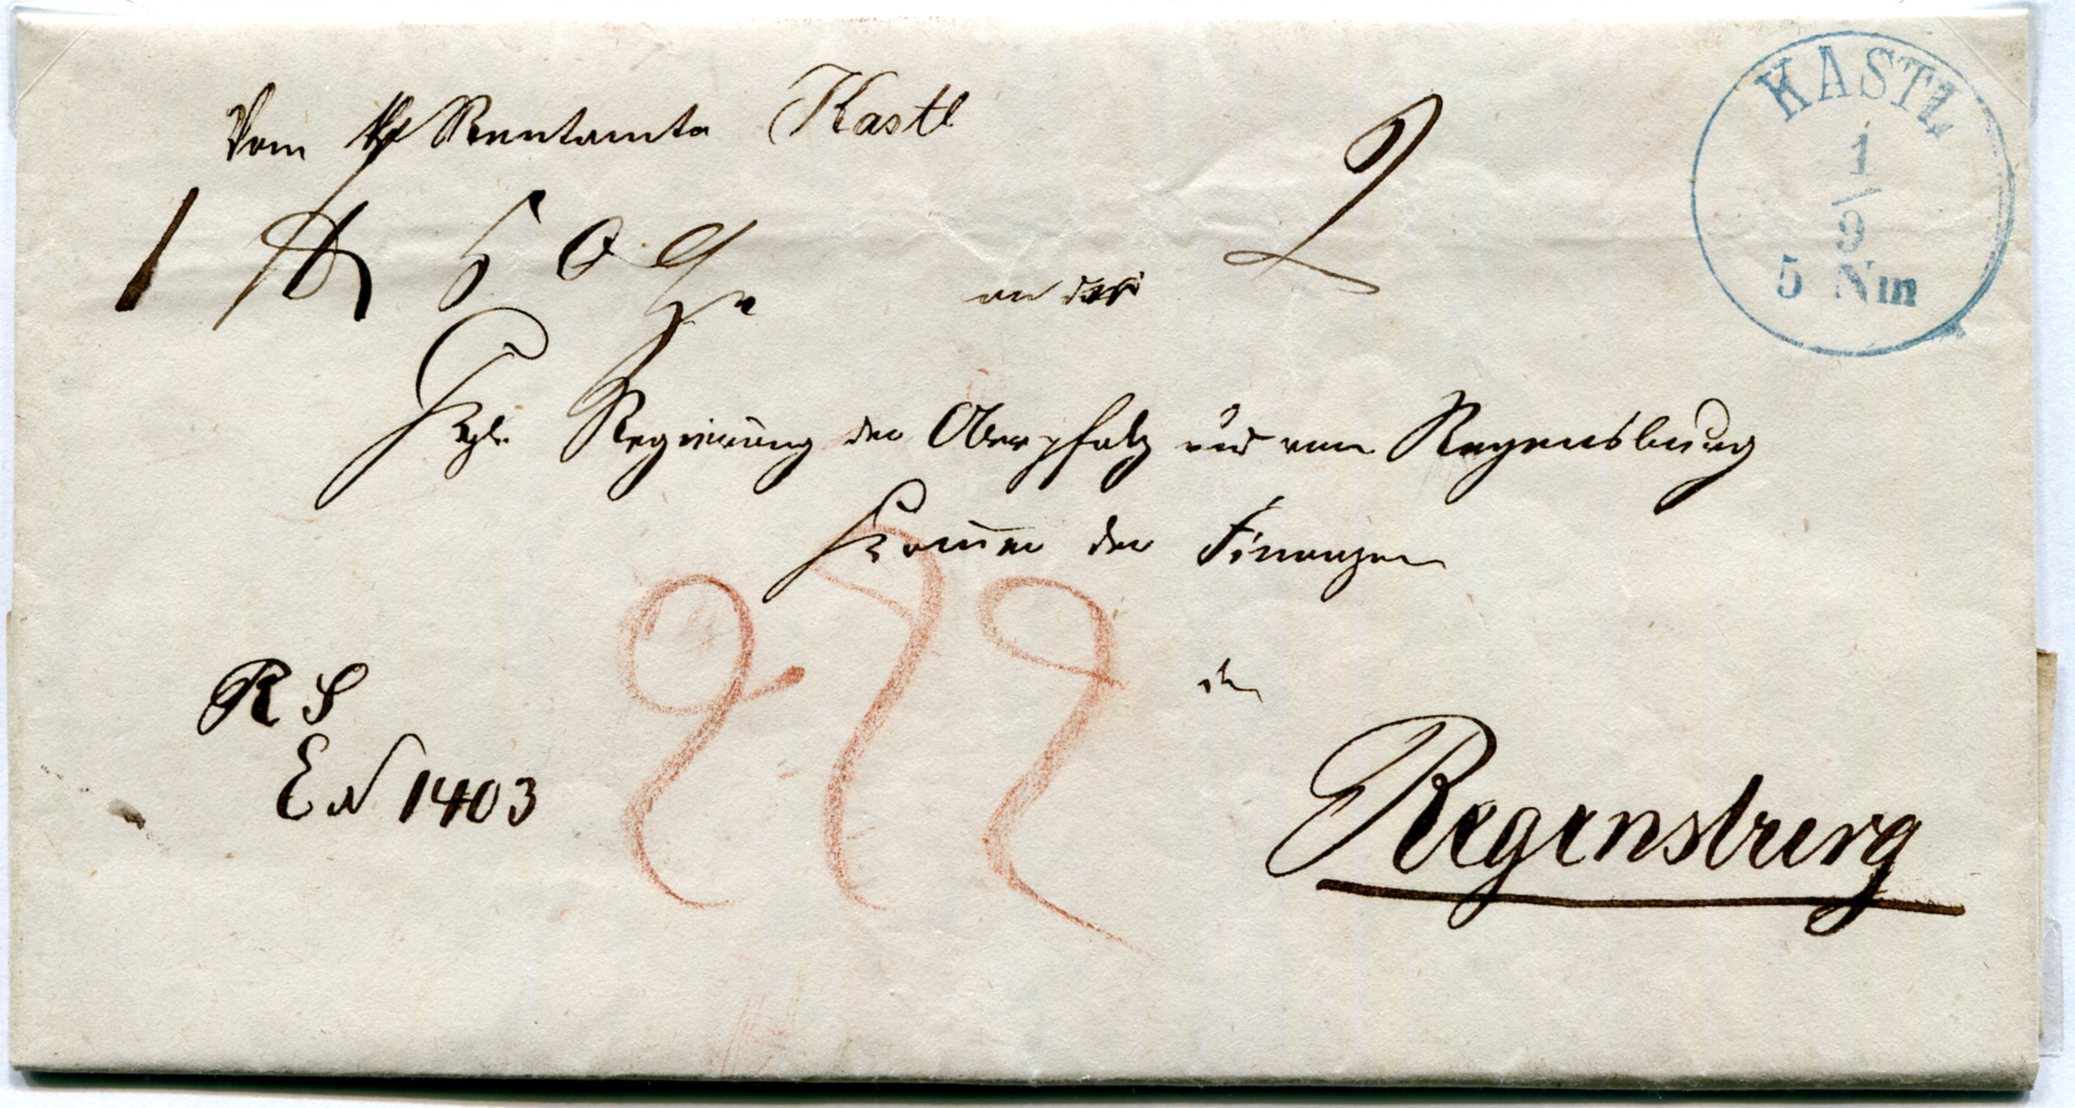 Vom kgl Rentamte Kastl
2
KASTL
1
9
5 Nm
1 6
an die
Kgl. Regierung der Oberpfalz und von Regensburg
Kammer der Finanzen
in
R S
E N 1403
Regensburg